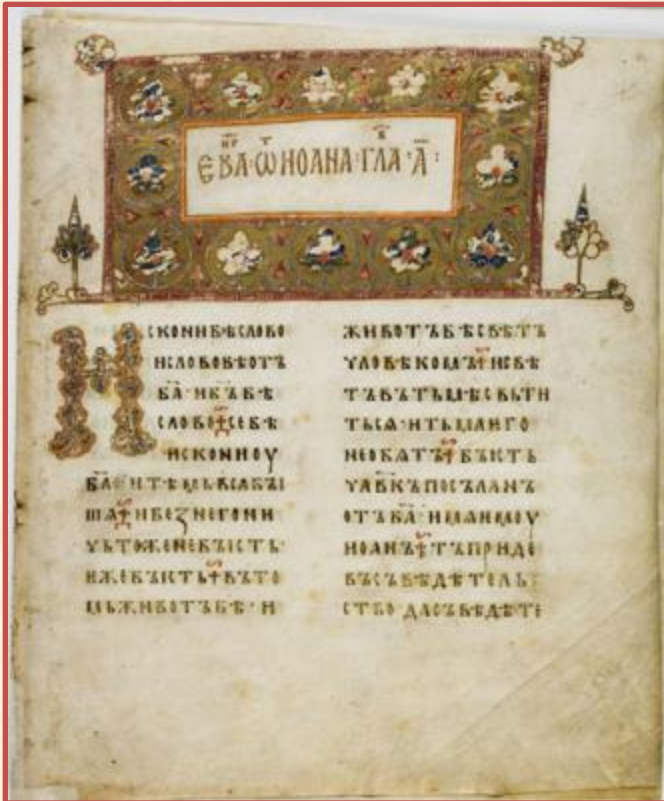 ЄВА҃НГ · Ѿ ИОАНА · ГЛА҃В · А҃ :
ИСКОНИ БѢ СЛОВО
И СЛОВО БѢ ОТЪ
БА҃ · И БЪ҃ БѢ
СЛОВО · СЕ БѢ
ИСКОНИ ОУ
БА҃ · И ТѢМЬ ВЬСꙖ БЫ
ША · И БЕЗ НЕГО НИ
ЧЬТОЖЕ НЕ БЫСТЬ ·
ИЖЕ БЫСТЬ · ВЪ ТО
МЬ ЖИВОТЪ БѢ · И
ЖИВОТЪ БѢ СВѢТЪ
ЧЛОВѢКОМЪ · И СВѢ
ТЪ ВЪ ТЬМѢ СВЬТИ
ТЬСѦ · И ТЬМА ѤГО
НЕ ОБѦТЪ · БЫСТЬ
ЧЛ҃ВКЪ ПОСЪЛАНЪ
ОТЪ БА҃ · ИМѦ ѤМОУ
ИОАНЪ · ТЪ ПРИДЕ
ВЪ СЪВѢДѢТЕЛЬ
СТВО ДА СЪВѢДѢТЕ